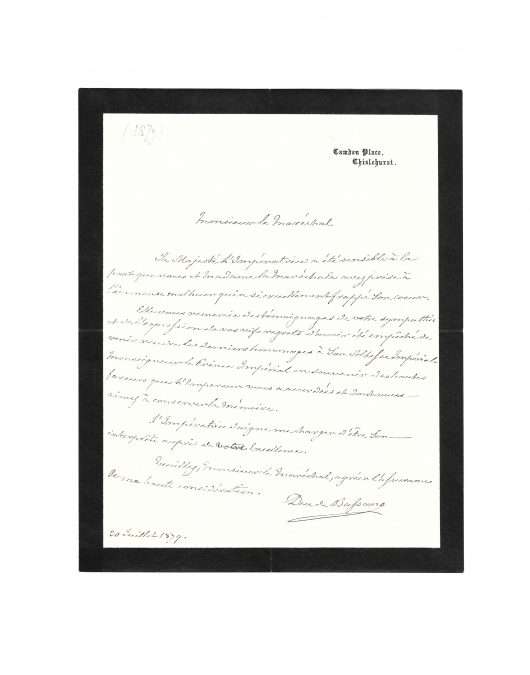 (1879)
Camden Place,
Chislehurst.
Monsieur le Maréchal
Sa Majesté l'Impératrice a été sensible à la
part que vous et Madame la Maréchale avez prise à
malheur qui a si cruellement frappé Son coeur.
Elle vous remercie des témoignages de votre sympathie
et de l'expression de vos vifs regrets d'avoir été empêché de
venir rendre les derniers hommages à Son Altesse Impériale
Monseigneur le Prince Impérial en souvenir des hautes
faveurs que l'Empereur vous a accordées et dont vous
aimez à conserver la mémoire.
L'Impératrice daigne me charger d'être Son
interprète auprès de votre Excellence.
Veuillez, Monsieur le Maréchal, agréer l'assurance
de ma haute considération.
Duc de Bassano
20 Juillet 1879.